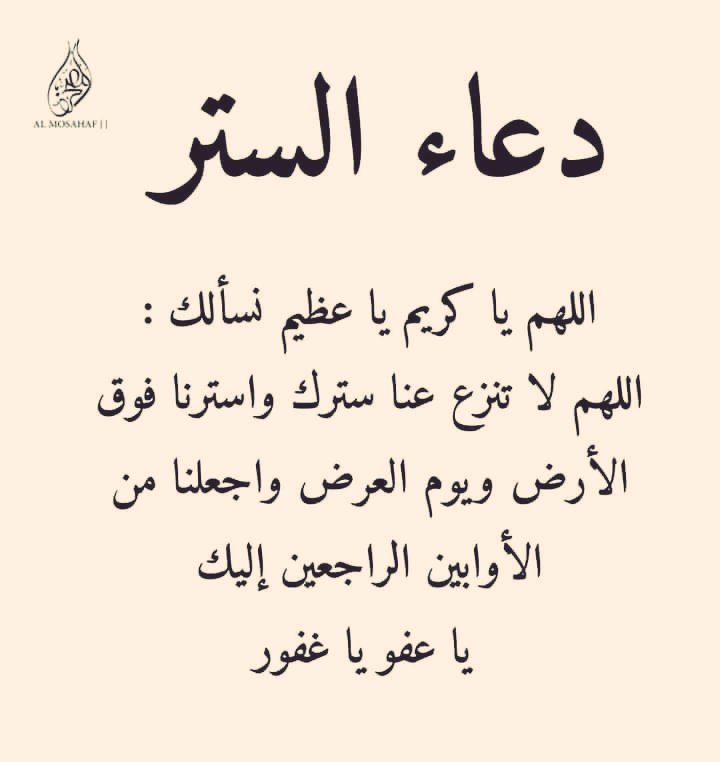 AL MOSAHAF ||
دعاء الستر
اللهم يا كريم يا عظيم نسألك :
اللهم لا تنزع عنا سترك واسترنا فوق
الأرض ويوم العرض واجعلنا من
الأوابين الراجعين إليك
يا عفو يا غفور